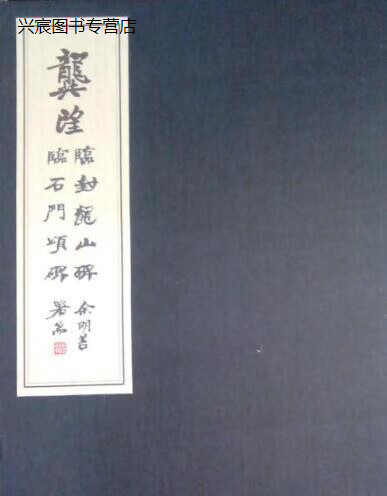 兴宸图书专营店
龔望
臨封龍山碑
臨石門頌碑
余明善
署耑